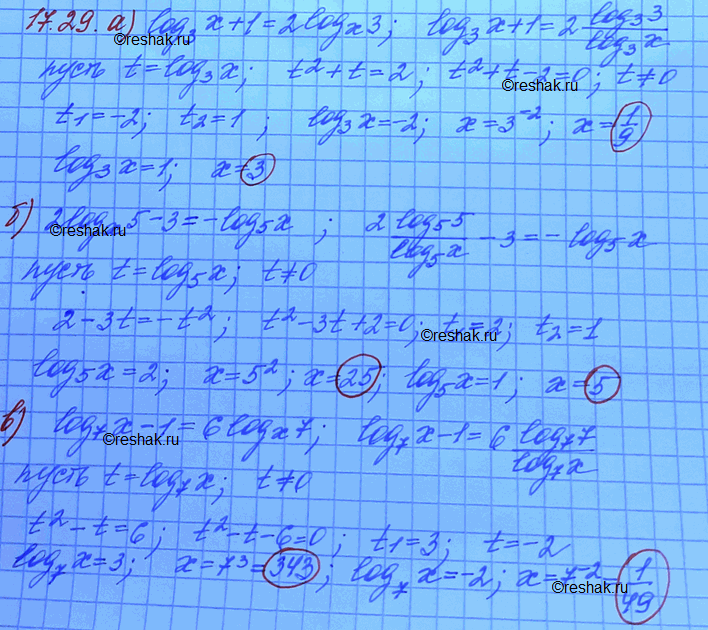 17.29. а) log₃ x + 1 = 2 logₓ 3; log₃ x + 1 = 2 log₃ 3 / log₃ x
reshak.ru
пусть t = log₃ x; t² + t = 2; t² + t - 2 = 0; t ≠ 0
reshak.ru
t₁ = -2; t₂ = 1; log₃ x = -2; x = 3⁻²; x = 1/9
log₃ x = 1; x = 3
б) 2 logₓ 5 - 3 = - log₅ x; 2 log₅ 5 / log₅ x - 3 = - log₅ x
reshak.ru
пусть t = log₅ x; t ≠ 0
2 - 3t = -t²; t² - 3t + 2 = 0; t₁ = 2; t₂ = 1
reshak.ru
log₅ x = 2; x = 5²; x = 25; log₅ x = 1; x = 5
в) log₇ x - 1 = 6 logₓ 7; log₇ x - 1 = 6 log₇ 7 / log₇ x
reshak.ru
пусть t = log₇ x; t ≠ 0
t² - t = 6; t² - t - 6 = 0; t₁ = 3; t = -2
log₇ x = 3; x = 7³ = 343; log₇ x = -2; x = 7⁻² = 1/49
reshak.ru